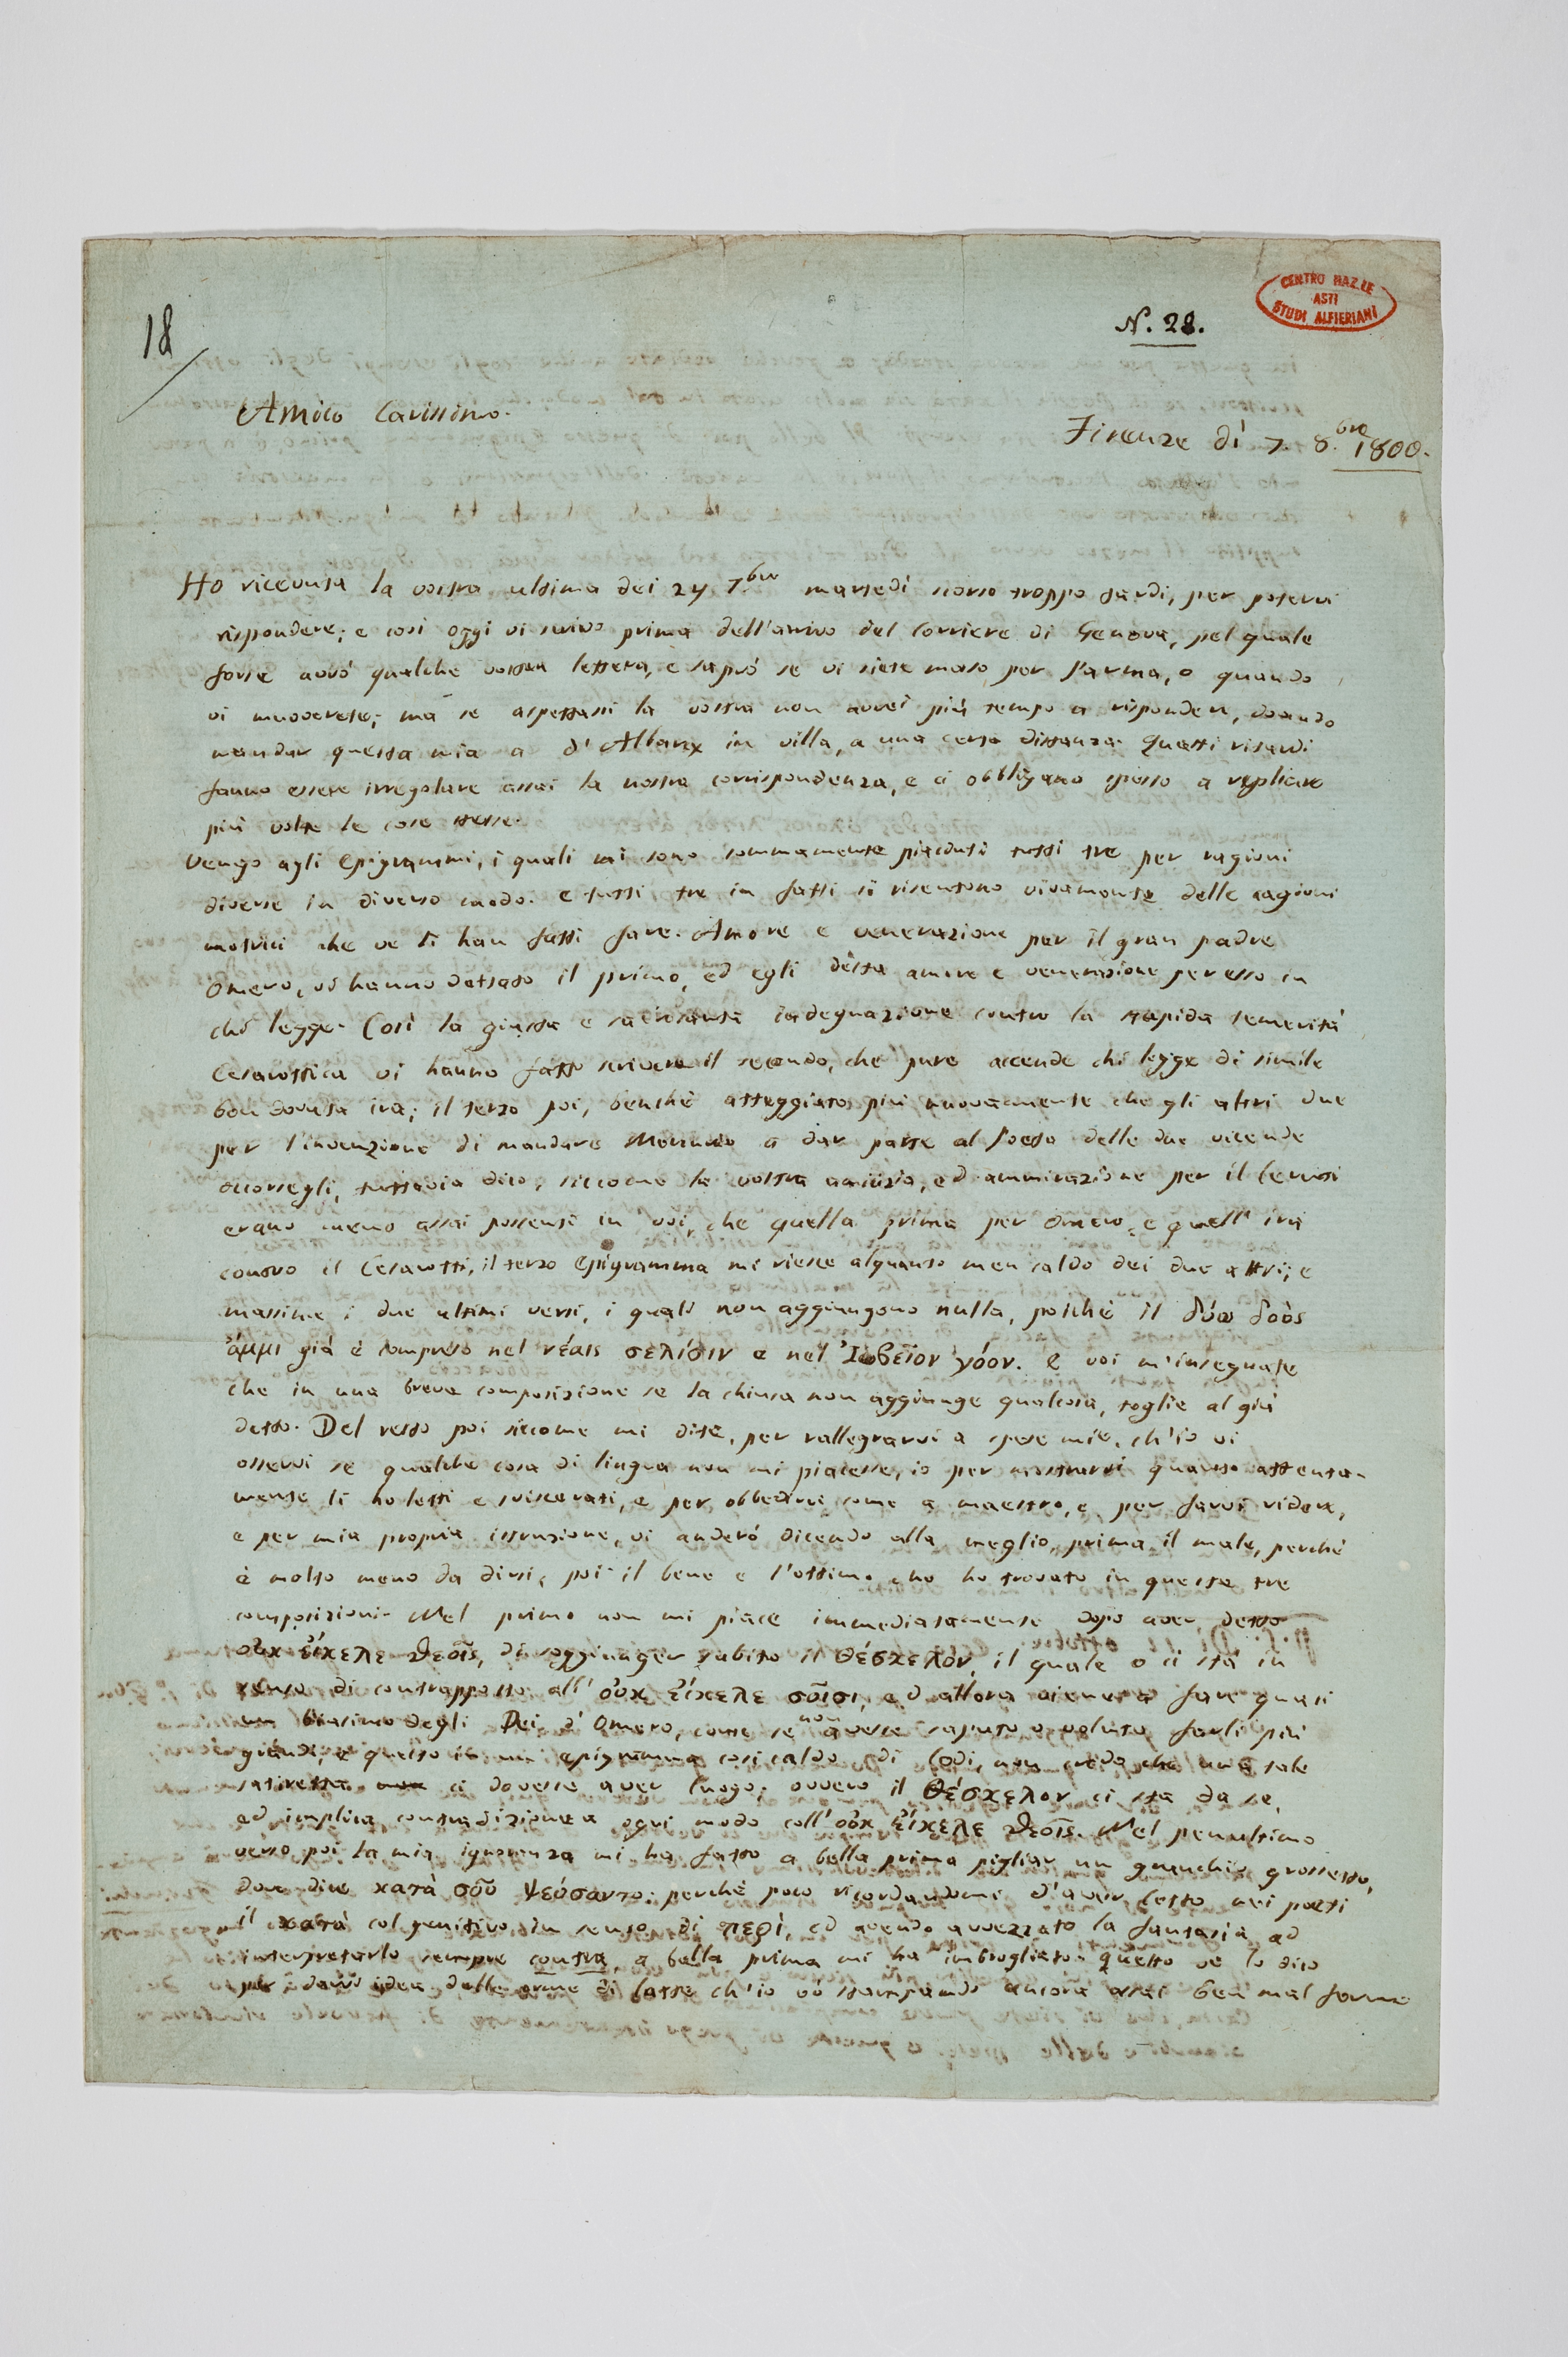 18
N. 28.
CENTRO NAZ.LE
ASTI
STUDI ALFIERIANI
Amico Carissimo.
Firenze dì 7. 8.bre 1800.
Ho ricevuta la vostra ultima dei 24 7.bre martedì scorso troppo tardi, per potervi
rispondere; e così oggi vi scrivo prima dell'arrivo del Corriere di Genova, pel quale
forse avrò qualche vostra lettera, e saprò se vi siete mosso per Parma, o quando
vi muoverete; ma se aspettassi la vostra non avrei più tempo a rispondere, dovendo
mandar questa mia a d'Albarey in villa, a una certa distanza. Questi ritardi
fanno essere irregolare assai la nostra corrispondenza, e ci obbligano spesso a replicare
più volte le cose stesse.
Vengo agli Epigrammi, i quali mi sono sommamente piaciuti tutti tre per ragioni
diverse in diverso modo. e tutti tre in fatti si risentono vivamente delle cagioni
motrici che ve li han fatti fare. Amore e venerazione per il gran padre
Omero, vi hanno dettato il primo, ed egli desta amore e venerazione per esso in
chi legge. Così la giusta e sacrosanta indegnazione contro la stupida temerità
Cesarottica vi hanno fatto scrivere il secondo, che pure accende chi legge di simile
ben dovuta ira; il terzo poi, benchè atteggiato più nuovamente che gli altri due
per l'invenzione di mandare Mercurio a dar parte al Poeta delle due vicende
occorsegli, tuttavia dico, siccome la vostra amicizia, ed ammirazione per il Ceruti
erano meno assai possenti in voi, che quella prima per Omero, e quell' ira
contro il Cesarotti, il terzo Epigramma mi riesce alquanto men caldo dei due altri; e
massime i due ultimi versi, i quali non aggiungono nulla, poichè il δύω δοὸς
ἄμμι già è compreso nel νέαις σελίσιν e nel Ἰωβεῖον γόον. e voi m'insegnate
che in una breve composizione se la chiusa non aggiunge qualcosa, toglie al già
detto. Del resto poi siccome mi dite, per rallegrarvi a spese mie, ch'io vi
osservi se qualche cosa di lingua non mi piacesse, io per mostrarvi quanto attenta-
mente li ho letti e sviscerati, e per obbedirvi come a maestro, e per farvi ridere,
e per mia propria istruzione, vi anderò dicendo alla meglio, prima il male, perchè
è molto meno da dirsi, poi il bene e l'ottimo che ho trovato in queste tre
composizioni. Nel primo non mi piace immediatamente dopo aver detto
οὐκ εἴκελε θεοῖς, di soggiunger subito il Θέσκελον, il quale o ci sta in
senso di contrapposto all' οὐκ εἴκελε σοῖσι, ed allora viene a fare quasi
un biasimo degli Dei d'Omero, come se non avesse saputo o voluto farli più
grandi; e questo in un epigramma così caldo di lodi, non credo che una tale
satiretta ci dovesse aver luogo; ovvero il Θέσκελον ci sta da se,
ed implica contradizione a ogni modo coll' οὐκ εἴκελε θεοῖς. Nel penultimo
verso poi la mia ignoranza mi ha fatto a bella prima pigliar un granchio grossetto,
dove dice κατὰ σοῦ ψεύσαντο: perchè poco ricordandomi d'aver letto nei poeti
il κατὰ col genitivo in senso di περί, ed avendo avvezzato la fantasia ad
interpretarlo sempre contra, a bella prima mi ha imbrogliato. Questo ve lo dico
per darvi idea delle orme di latte ch'io vò stampando ancora assai ben mal ferme